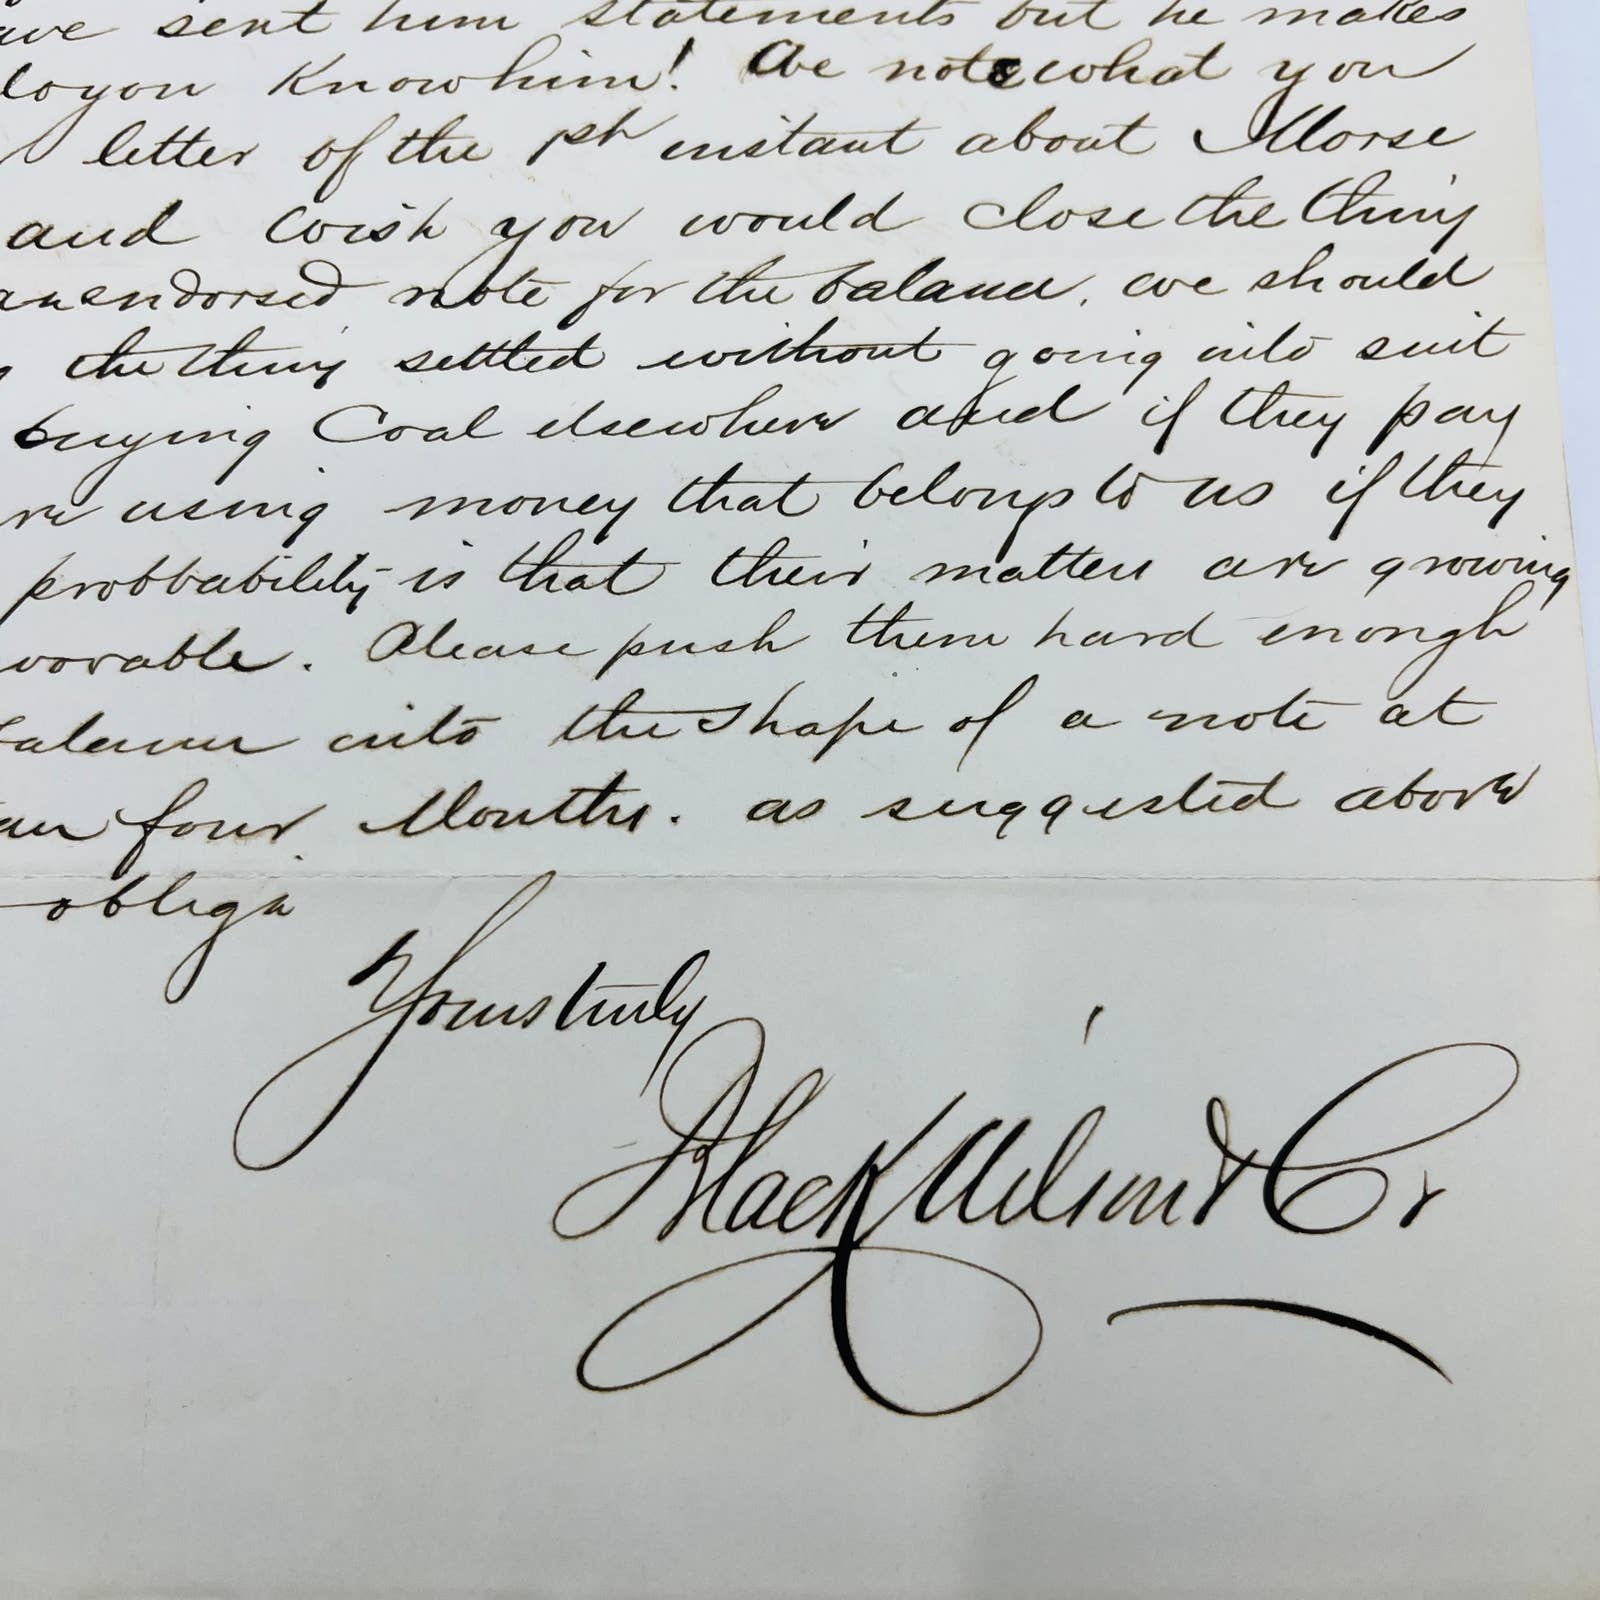 ave sent him statements but he makes
do you Know him! We note what you
letter of the 1st instant about Morse
and wish you would close the thing
an endorsed note for the balance. we should
the thing settled without going into suit
buying Coal elsewhere and if they pay
are using money that belongs to us if they
probbability is that their matters are growing
vorable. Please push them hard enough
balance into the shape of a note at
an four Months. as suggested above
oblige
Yours truly
Black Wilson & Co